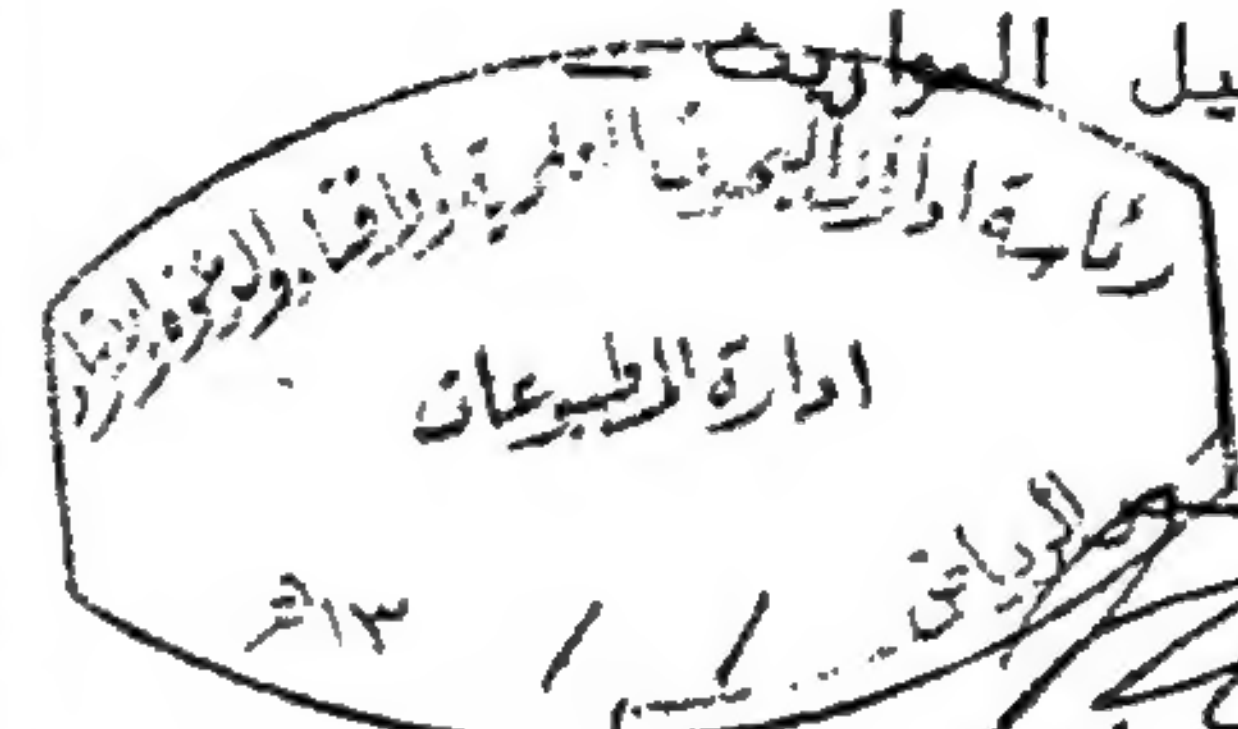 يل المواريث _
رئاسة ادارات البحوث العلمية والافتاء والدعوة والارشاد
ادارة المطبوعات
الرياض
/ / ١٣هـ